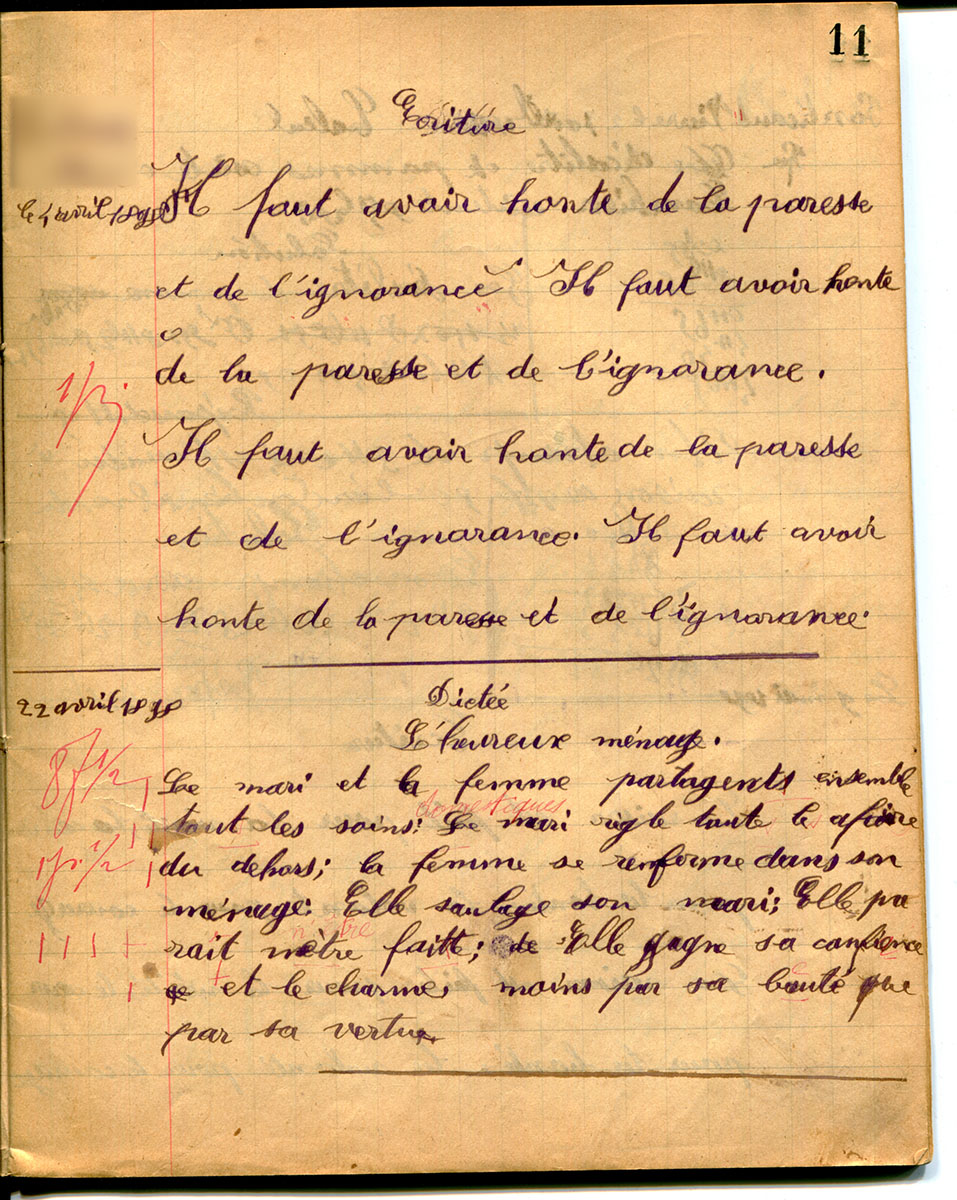 11
Ecriture
le 1 avril 1898
Il faut avoir honte de la paresse
et de l'ignorance Il faut avoir honte
de la paresse et de l'ignorance.
Il faut avoir honte de la paresse
et de l'ignorance. Il faut avoir
honte de la paresse et de l'ignorance.
22 avril 1898
Dictée
L'heureux ménage.
8f 1/2
Le mari et la femme partagents ensemble
domestiques
tout les soins: Le mari rigle toute le afaire
du dehors; la femme se renferme dans son
ménage: Elle soulage son mari; Elle pa
n'être
rait mètre faitt; de Elle gagne sa confience
et le charme, moins par sa bauté que
par sa vertu